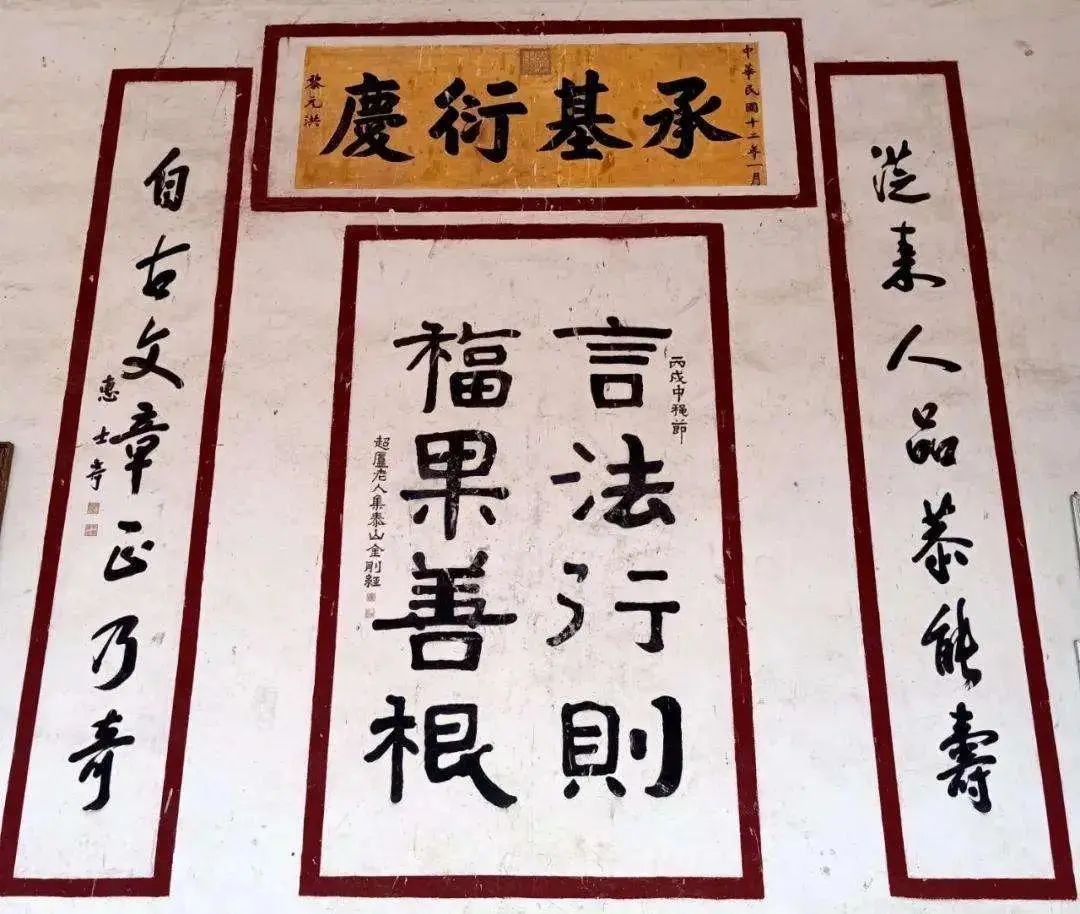 中華民國十二年一月
承基衍慶
黎元洪
從来人品恭能壽
丙戌中秋節
言法行則
福果善根
超廬老人集泰山金剛經
自古文章正乃奇
惠士奇